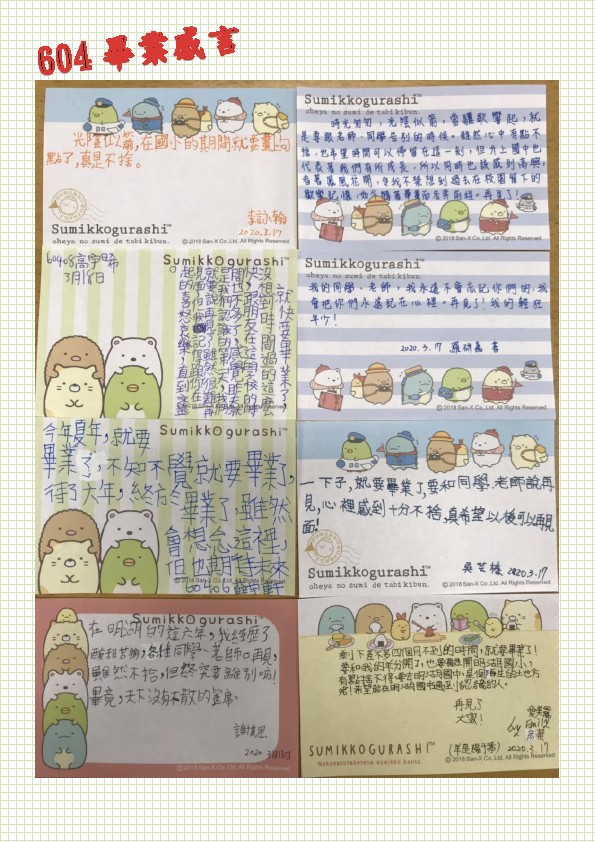 604 畢業感言
光陰似箭,在國小的期間就要畫上句
點了,真是不捨。
2020.3.17
Sumikkogurashi™
oheya no sumi de tabikibun.
©2018 San-X Co.,Ltd. All Rights Reserved.
Sumikkogurashi™
oheya no sumi de tabikibun
時光匆匆,光陰似箭,當驪歌響起,就
是要跟老師、同學告別的時候。雖然心中有點不
捨,也希望時間可以停留在這一刻,但升上國中也
代表著我們有所成長,所以同時也該感到高興。
看著鳳凰花開,令我不禁想到過去在校園留下的
歡樂記憶,
再見了!
©2018 San-X Co.,Ltd. All Rights Reserved.
Sumikkogurashi™
60408高宇晞
3月18日
就快要畢業了,
沒想到時間過的這麼
快,跟朋友在這學校的時
間也不多了,感覺昨天才
是我們認識的第一天,
©2018 San-X Co.,Ltd. All Rights Reserved.
我的同學、老師,我永遠不會忘記你們的,我
會把你們永遠記在心裡。再見了!我的輕狂
年少!
2020.3.17 羅研嘉 書
©2018 San-X Co.,Ltd. All Rights Reserved.
Sumikkogurashi™
今年夏年,就要
畢業了,不知不覺就要畢業了,
待了六年,終於
畢業了,雖然
會想念這裡,
但也期待未來
©2018 San-X Co.,Ltd. All Rights Reserved.
一下子,就要畢業了,要和同學、老師說再
見,心裡感到十分不捨,真希望以後可以再見
面!
2020.3.17
Sumikkogurashi™
oheya no sumi de tabikibun.
©2018 San-X Co.,Ltd. All Rights Reserved.
Sumikkogurashi™
在明湖的這六年,我經歷了
酸甜苦辣,各種同學、老師。再見,
雖然不捨,但終究要離別啊!
畢竟,天下沒有不散的筵席。
2020 3月18日
©2018 San-X Co.,Ltd. All Rights Reserved.
剩下差不多四個月不到的時間,就要畢業了!
要和我的半分開了,也要離開明湖國小,
有點捨不得。要去明湖國中,是個陌生的土地方
呢!希望能在明湖國中遇到認識的人。
再見了
大家!
by Emily
2020.3.17
SUMIKKOGURASHI™
Nokosaretabotena sumikko bento.
©2018 San-X Co.,Ltd. All Rights Reserved.